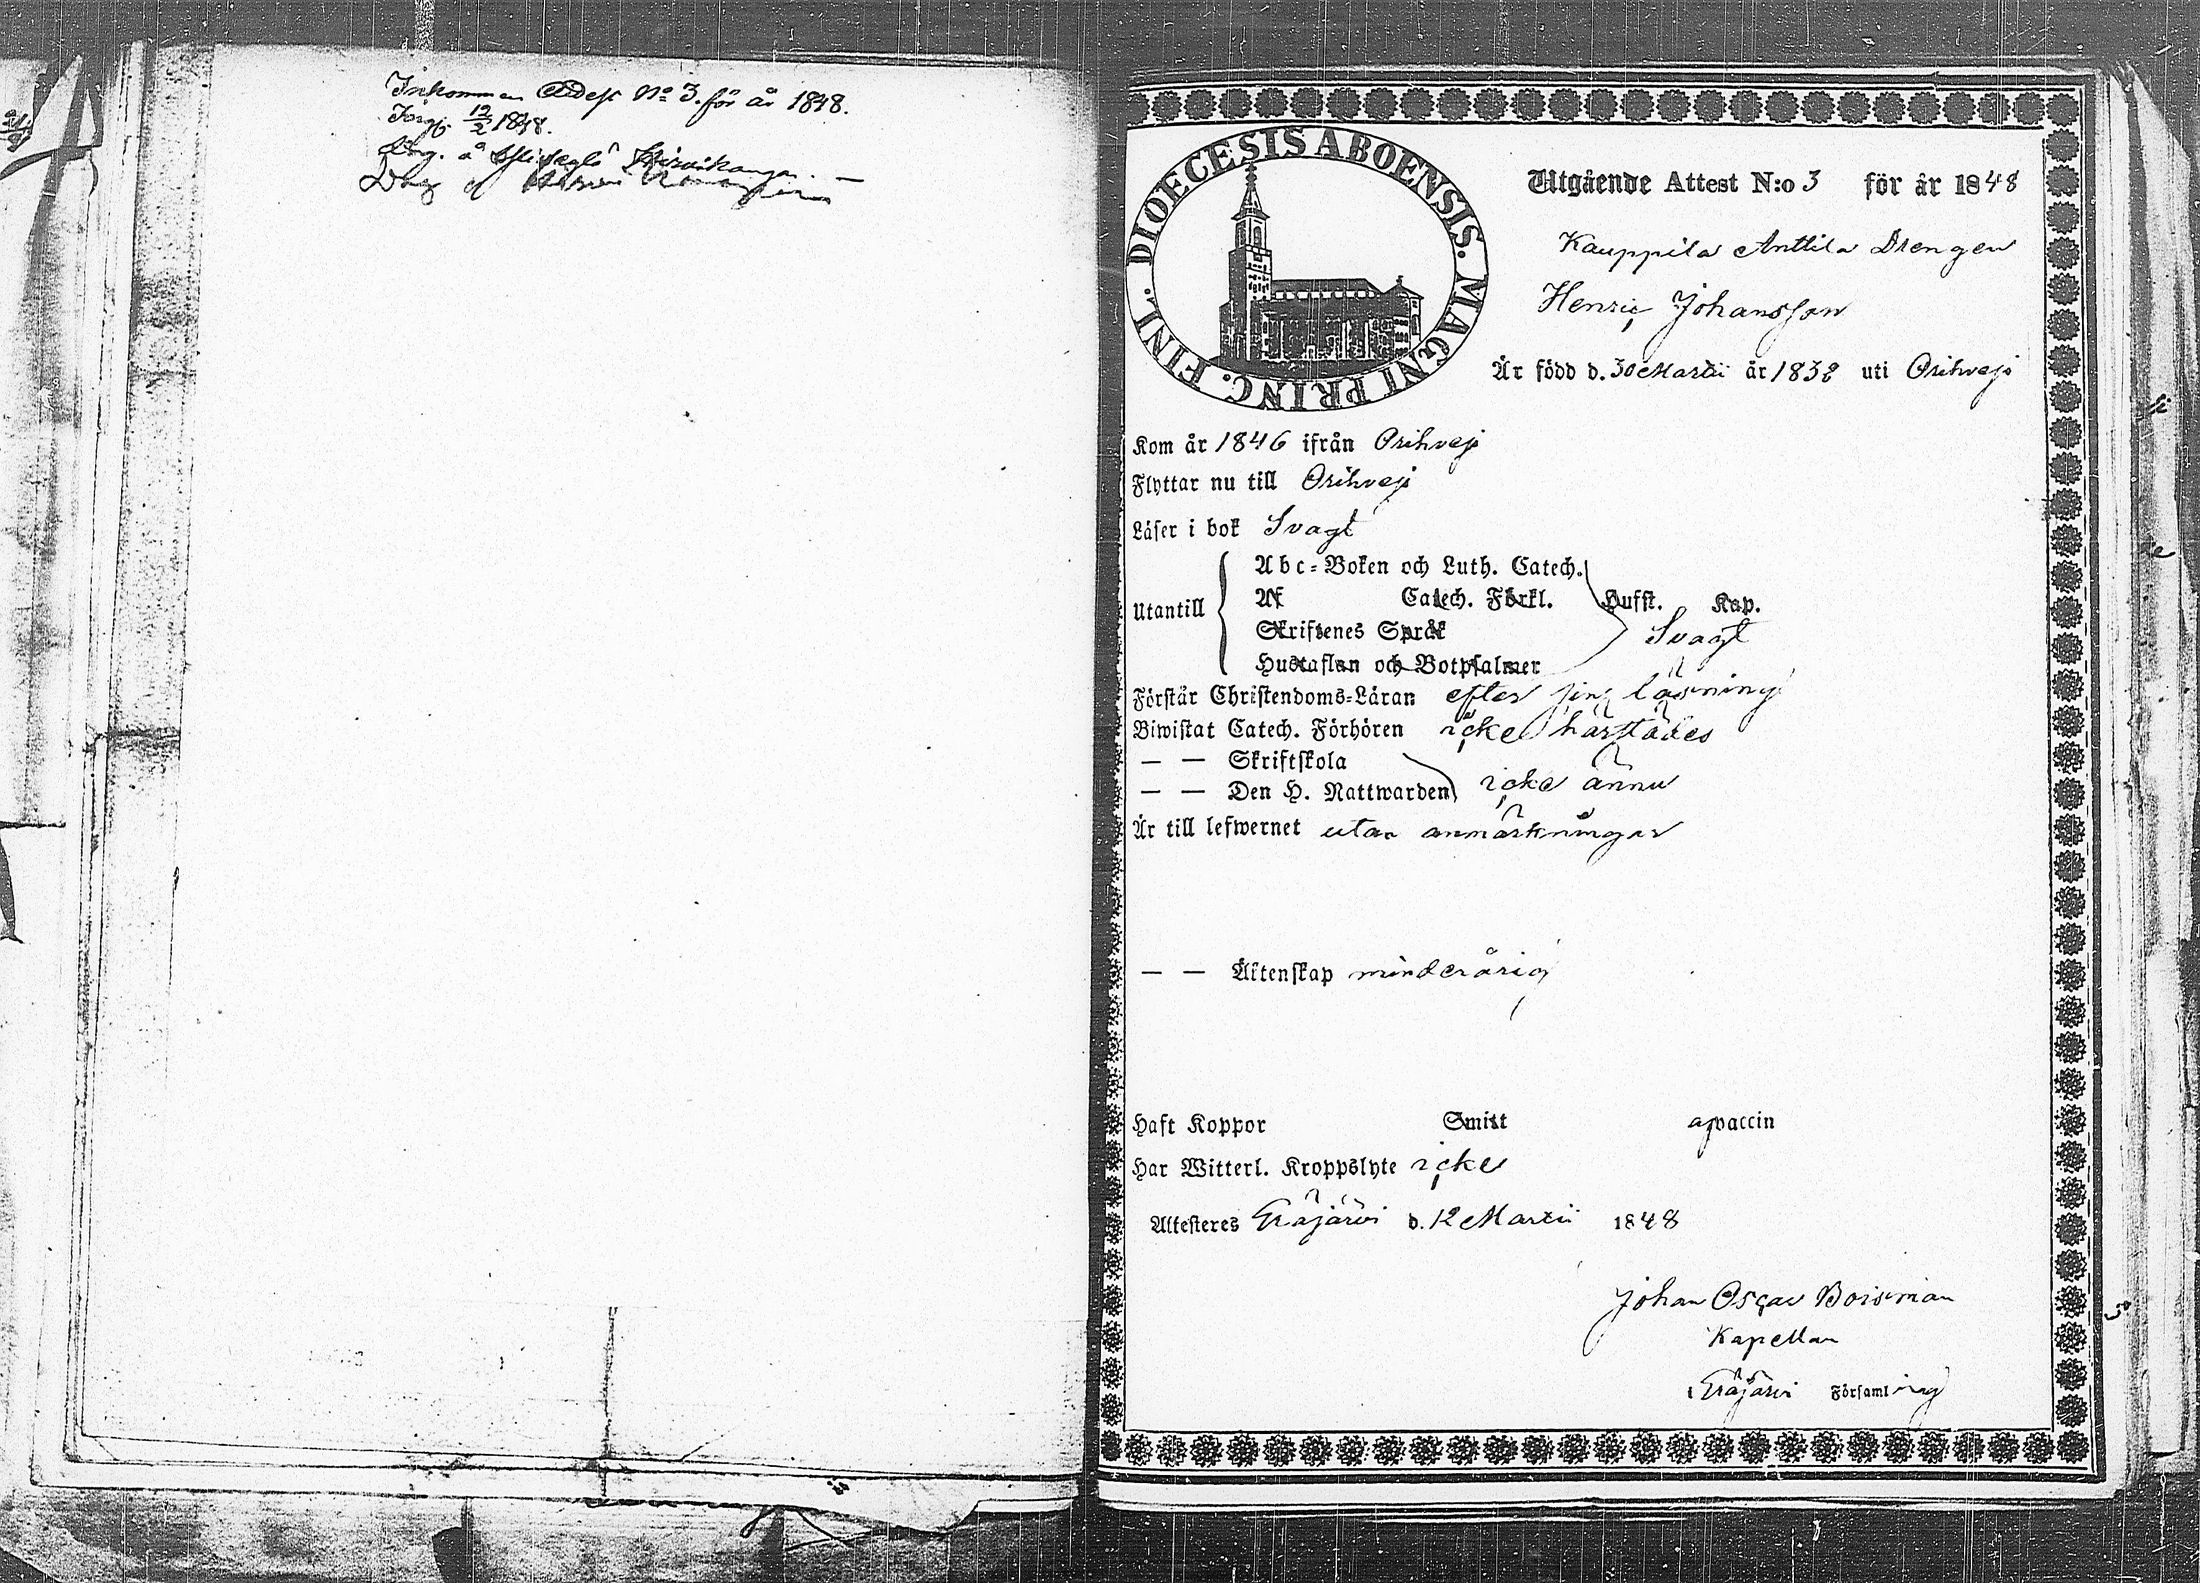 Inkommen Attest No 3. för år 1848.
12/2 1848.
DIOECESIS ABOENSIS. MAGNI PRINC. FINL.
Utgående Attest N:o 3 för år 1848
Kauppila Anttila Drengen
Henric Johansson
Är född d. 30 Martii år 1832 uti Orihvesi
Kom år 1846 ifrån Orihvesi
Flyttar nu till Orihvesi
Läser i bok Svagt
Utantill
Abc-Boken och Luth. Catech.
Af Catech. Förkl. Hufst. Kap.
Skriftenes Språk Svagt
Hustaflan och Botpsalmer
Förstår Christendoms-Läran efter sin läsning
Biwistat Catech. Förhören icke härstädes
— — Skriftskola
— — Den H. Nattwarden icke ännu
Är till lefwernet utan anmärkningar
— — Äktenskap minderårig
Haft Koppor Smitt af vaccin
Har Witterl. Kroppslyte icke
Attesteres Eräjärvi d. 12 Martii 1848
Johan Oscar Boisman
Kapellan
i Eräjärvi Församling